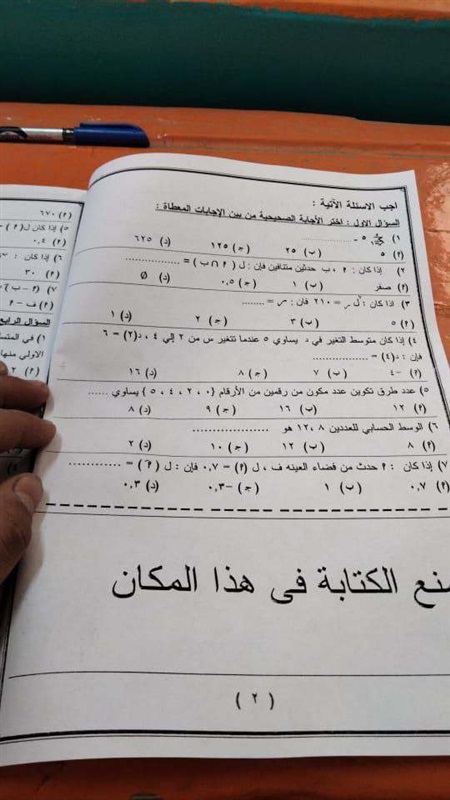 أجب الاسئلة الآتية :
السؤال الاول : اختر الأجابة الصحيحية من بين الإجابات المعطاة :
(١
(٢) ٥ (ب) ٢٥ (ج) ١٢٥ (د) ٦٢٥
(٢ إذا كان : ٢ ، ب حدثين متنافين فإن : ل ( ٢ ∩ ب ) = ................
(٢) صفر (ب) ١ (ج) ٠,٥ (د) Ø
(٣ اذا كان : = ٢١٠ فان : س = ........
(٢) ٥ (ب) ٣ (ج) ٢ (د) ١
(٤ إذا كان متوسط التغير في د يساوي ٥ عندما تتغير س من ٢ إلي ٤ ، د(٢) = ٦
فإن : د(٤) = ................
(٢) -٤ (ب) ٧ (ج) ٨ (د) ١٦
(٥ عدد طرق تكوين عدد مكون من رقمين من الأرقام { ٠ ، ٢ ، ٤ ، ٥ } يساوي ......
(٢) ١٢ (ب) ١٦ (ج) ٩ (د) ٨
(٦ الوسط الحسابي للعددين ٨ ،١٢ هو ....................
(٢) ٨ (ب) ١٢ (ج) ١٠ (د) ٢
(٧ إذا كان : ٢ حدث من فضاء العينه ف ، ل (٢) = ٠,٧ فإن : ل ( ٢َ ) = ............
(٢) ٠,٧ (ب) ١ (ج) -٠,٣ (د) ٠,٣
الكتابة فى هذا المكان
( ٢ )
(٢) ٦٧٠
(٥ إذا كان ل(٢
(٢) ٠,٤
(٦ إذا كان :
(٢) ٣٠
(٢) ف - ٢
السؤال الرابع
(١ في المتسا
الاولي منها